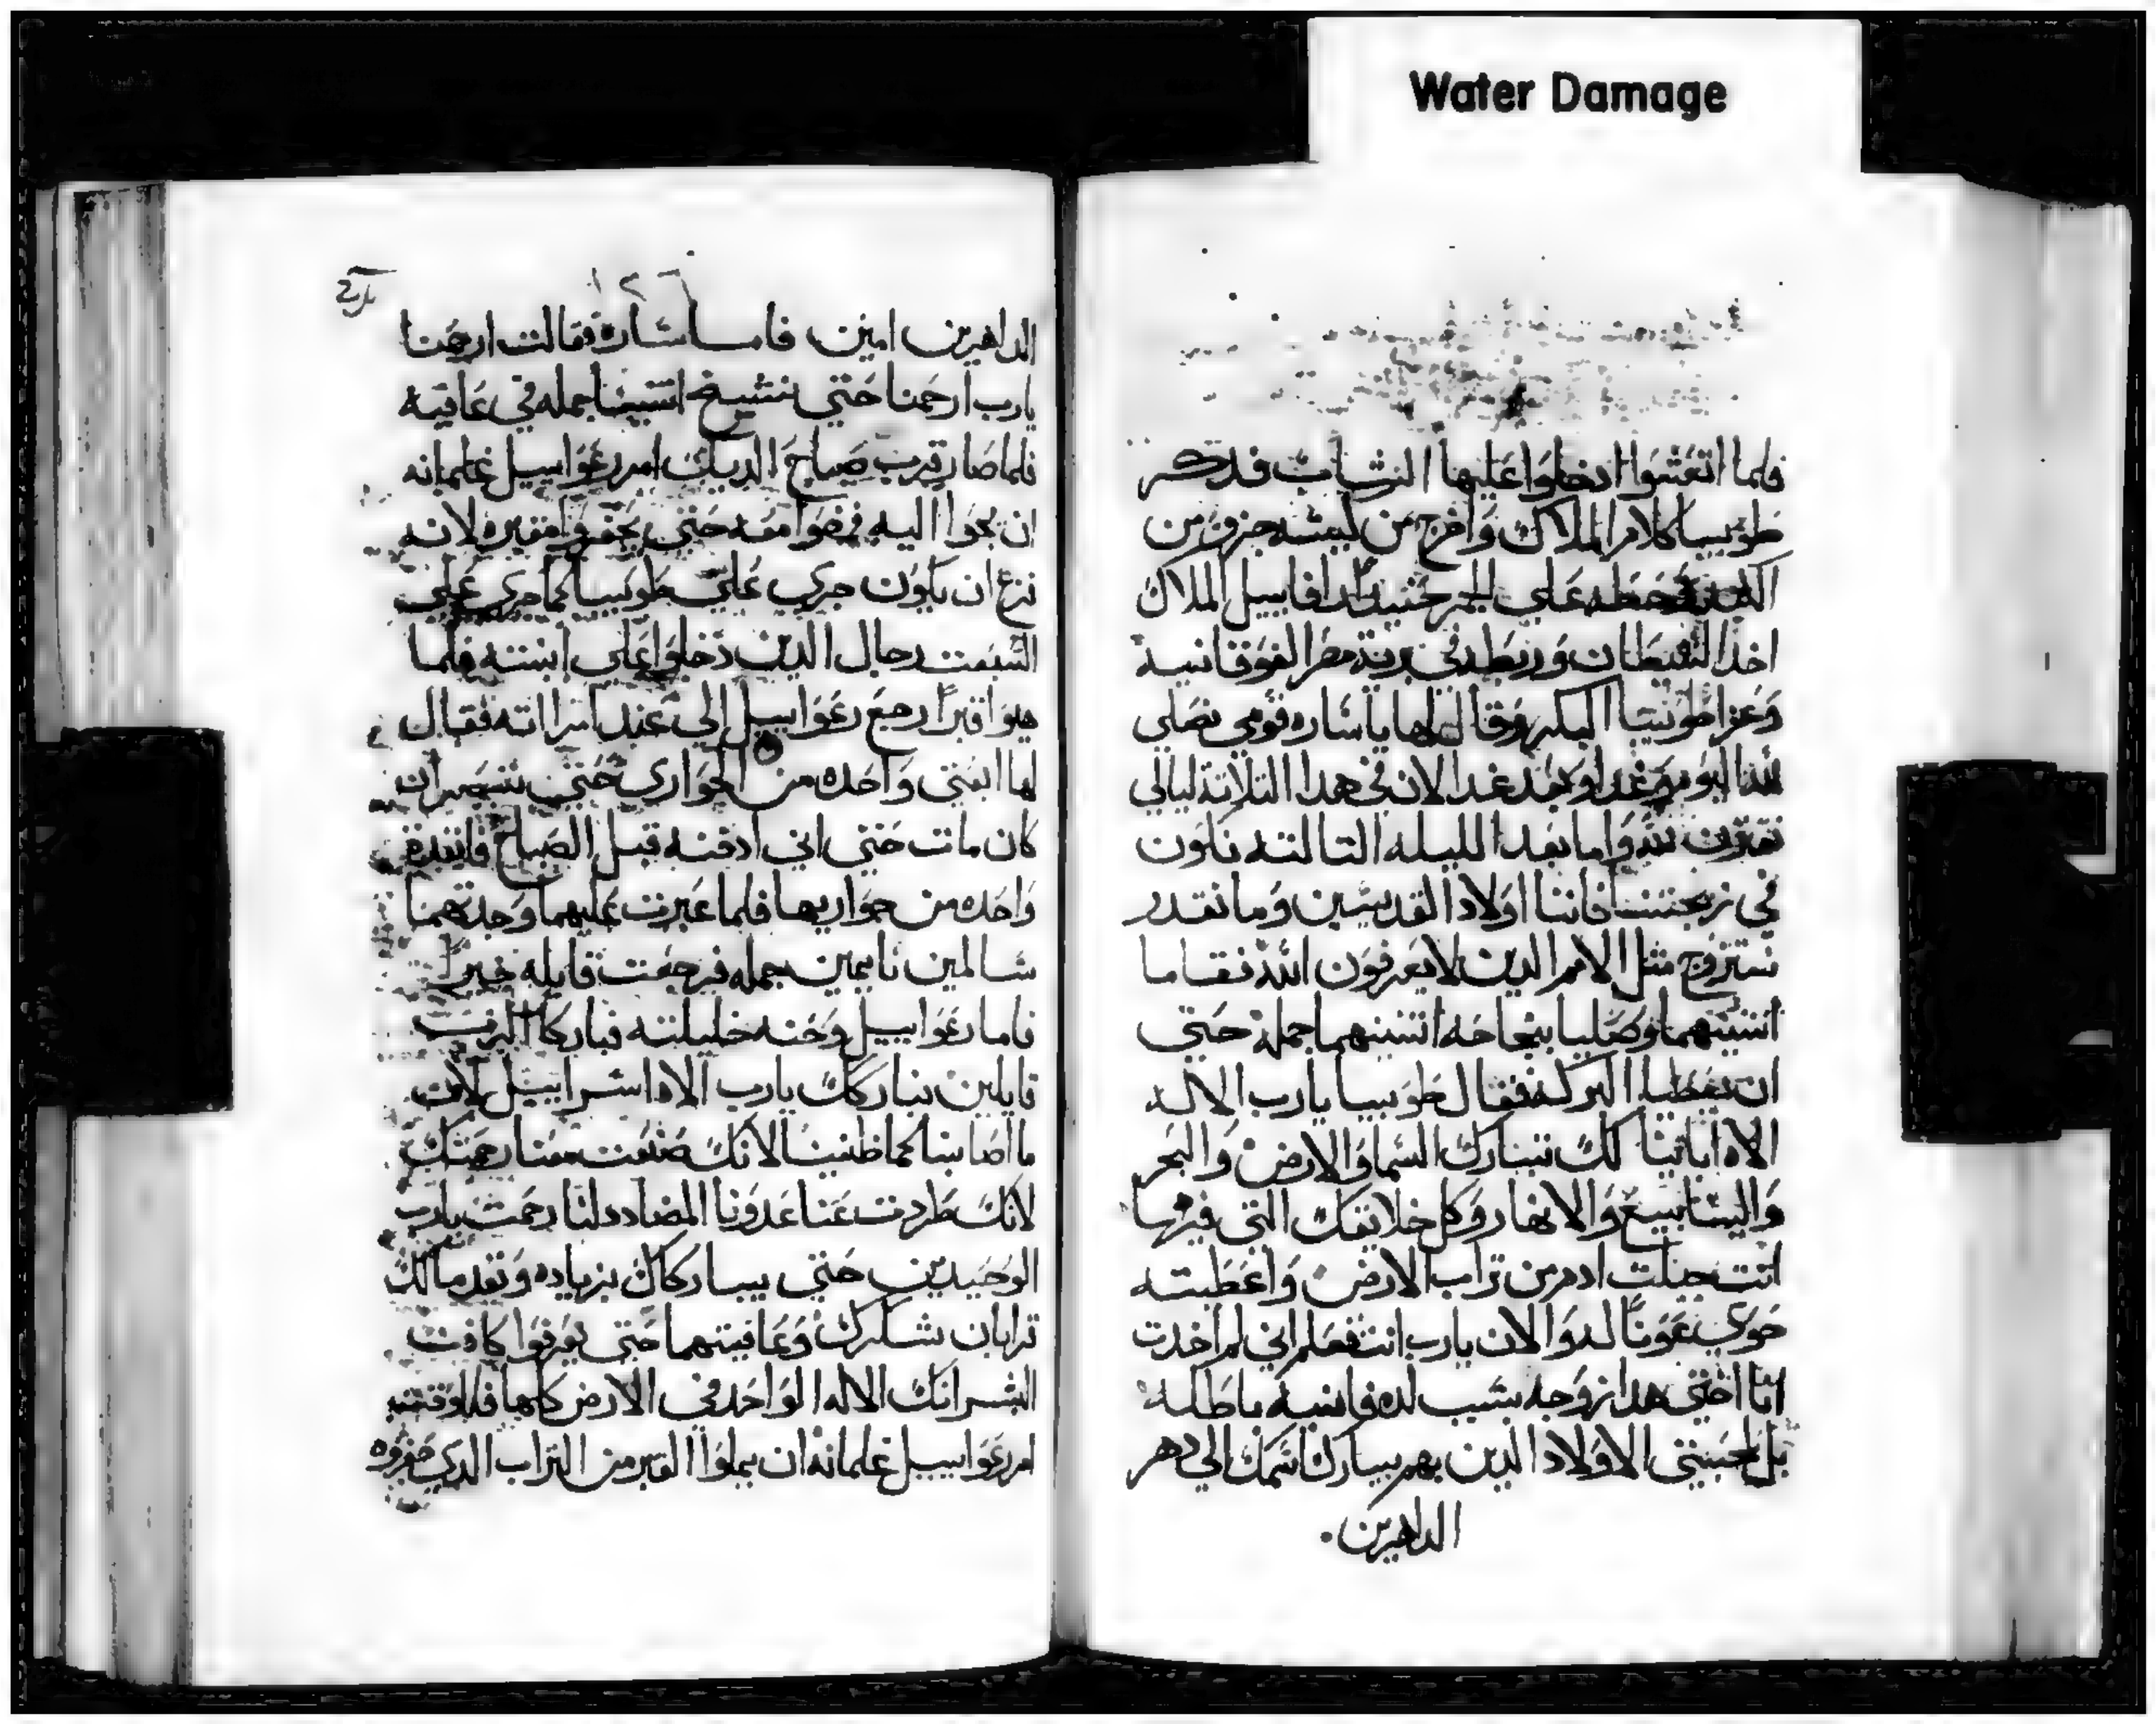 Water Damage
فلما اتعشوا ادخلوا عليها الشاب فدكر
طوبيا كلام الملاك واخرج من كيسه جزو من
الكبد علي الجمر حنيد رافاييل الملاك
اخد الشيطان وربطه في برية مصر الفوقانيه
وعزا طوبيا البكر وقال لها يا ساره قومي نصلي
لله اليوم وغدا وبعد غدا لان في هدا التلاتة ليالي
نقترن لله واما بعد الليله التالته نكون
في زيجتنا فاننا اولاد القديسين وما نقدر
نتزوج مثل الامم الدين لا يعرفون الله فقاما
اتنينهما وصليا بنجاحه اتنينهما جمله حتي
ان يعطيا البركه فقال طوبيا يارب الاله
الاه اباتينا لك تتبارك السما والارض والبحر
والينابيع والانهار وكل خلايقك التي فيها
انت جبلت ادم من تراب الارض واعطيته
حوي عونا له والان يارب انت تعلم اني لم اخدت
انا اختي هدا زوجه بسبب لده فانيه باطله
بل لمحبتي الاولاد الدين بهم يبارك اسمك الي دهر
الداهرين
١٢٦
الداهرين امين فاما ساره فقالت ارحمنا
يارب ارحمنا حتي نشيخ اتنينا جمله في عافيه
فلما صار قرب صياح الديك امر رعواييل غلمانه
ان يجوا اليه فمضوا معه حتي يحفروا مقبره لانه
فزع ان يكون جري علي طوبيا كما جري علي
السبعت رجال الدين دخلوا علي ابنته فلما
هيوا قبرا رجع رعواييل الي عند امراته فقال
لها ابعتي واحده من الجواري حتي تبصر ان
كان مات حتي اني ادفنه قبل الصباح فانفدة
واحده من جواريها فلما عبرت عليهما وجدتهما
سالمين نايمين جمله فرجعت قايله خيرا
فاما رعواييل وحنه خليلته فباركا الرب
قايلين نباركك يارب الاه اسراييل لان
ما اصابنا كما ظنينا لانك صنعت معنا رحمتك
لانك طردت عنا عدونا المضاددلنا رحمت يارب
الوحيدين حتي يباركاك بزياده ونقدما لك
قرابان شكرك وعافيتهما حتي يعرفوا كافت
البشر انك الاله الواحد في الارض كلها فللوقت
امر رعواييل غلمانه ان يملوا القبر من التراب الدي حفروه